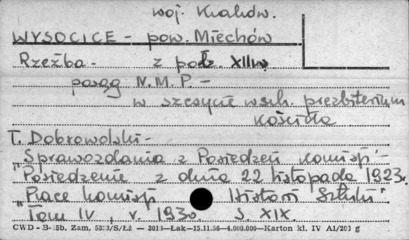 woj. Kraków.
WYSOCICE - pow. Miechów
Rzeźba - z poł. XII w.
posąg N.M.P. -
w szczycie wsch. prezbiterium
kościoła
T. Dobrowolski -
"Sprawozdania z Posiedzeń Komisji" -
"Posiedzenie z dnia 22 listopada 1923.
"Prace Komisji Historii Sztuki"
Tom IV, r. 1930 S. XIX.
CWD - B- Zam. — Łak—15.11.56—4.000.000—Karton kl. IV A1/203 g